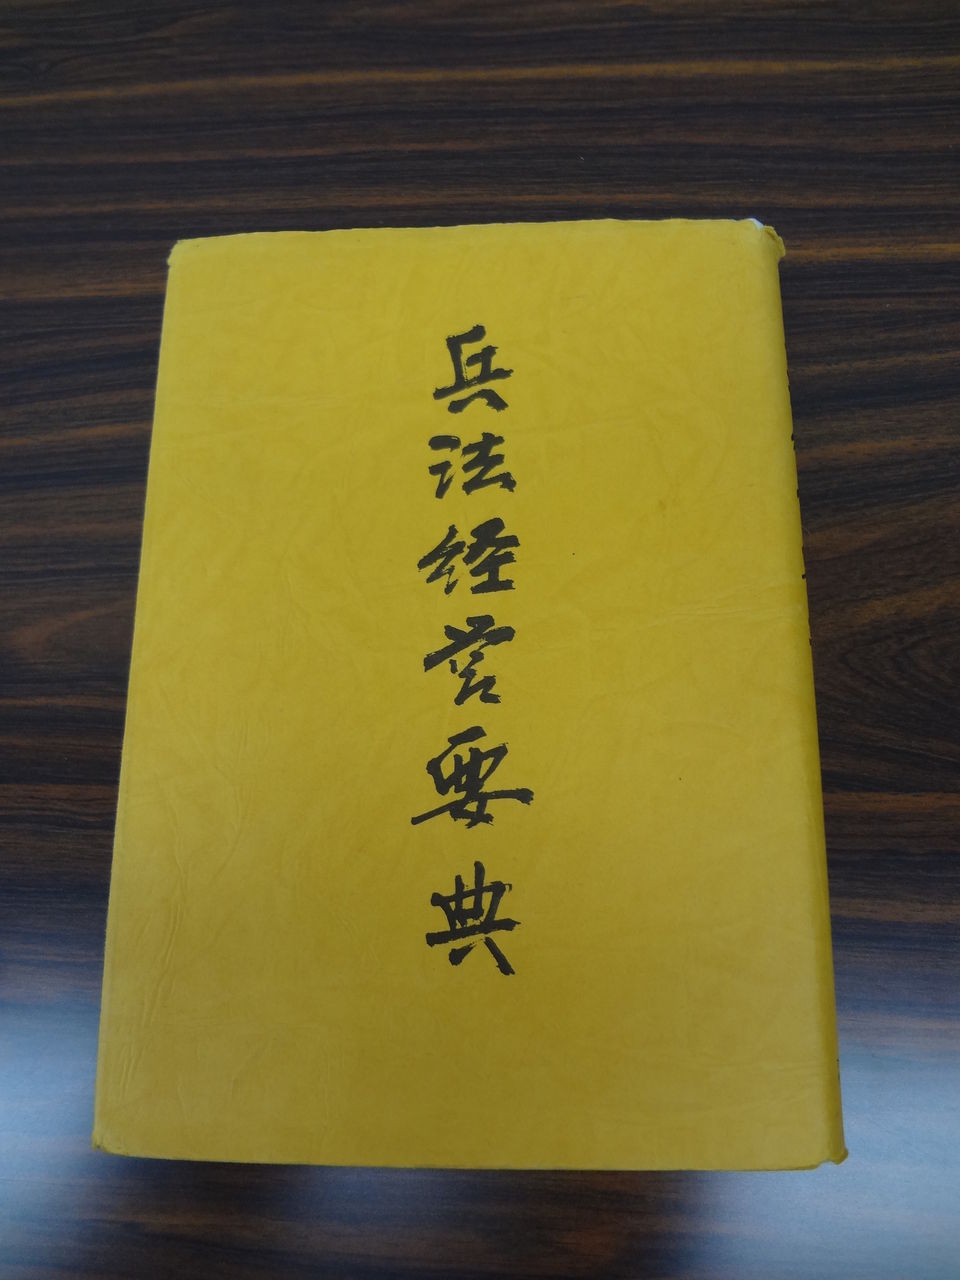 兵法经营要典